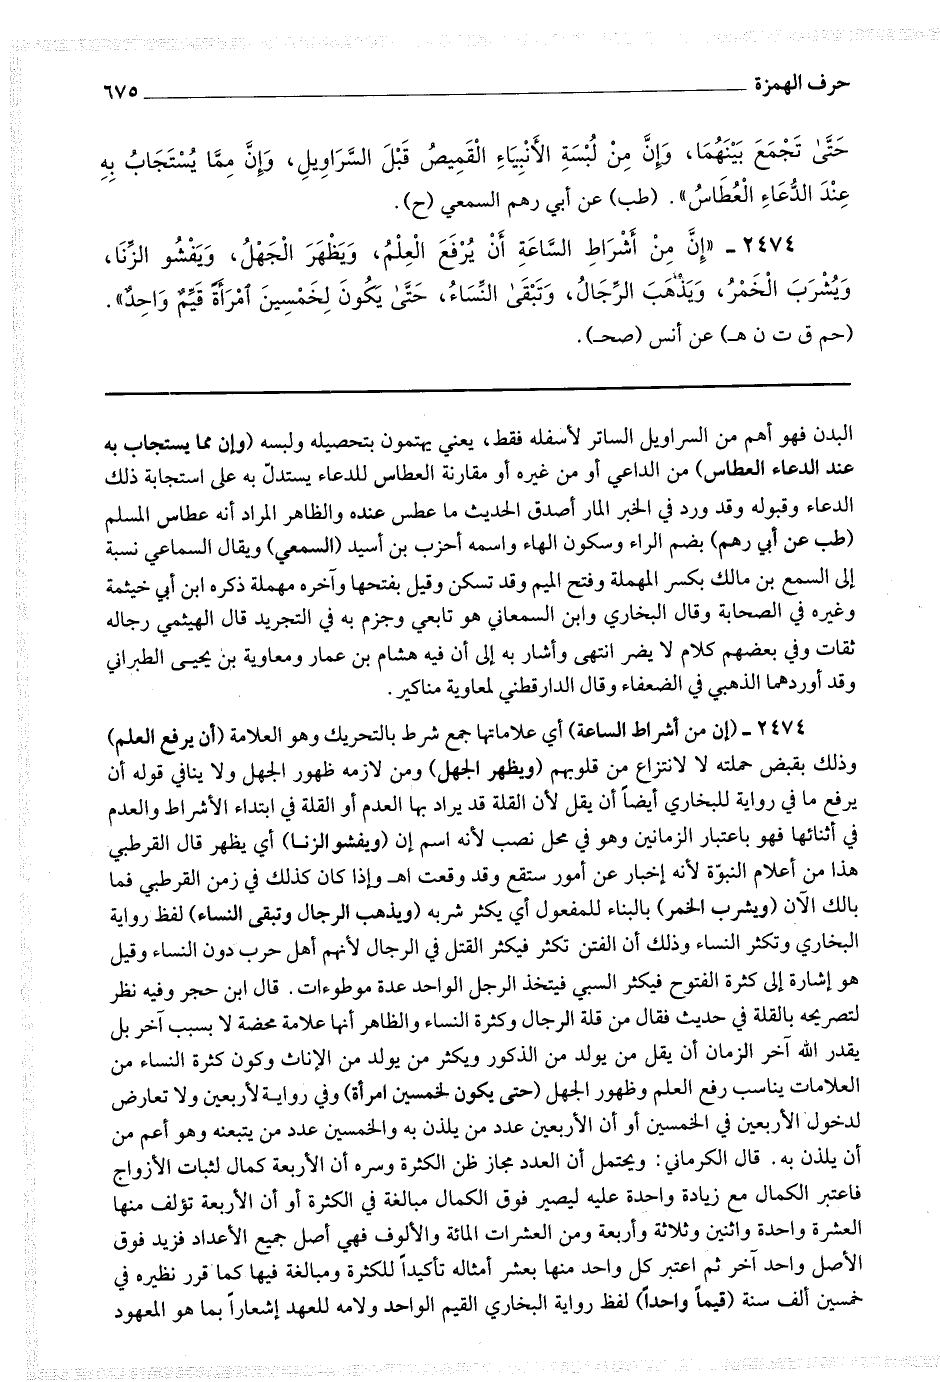 حرف الهمزة ٦٧٥
حَتَّىٰ تَجْمَعَ بَيْنَهُمَا، وَإِنَّ مِنْ لُبْسَةِ الأَنْبِيَاءِ الْقَمِيصُ قَبْلَ السَّرَاوِيلِ، وَإِنَّ مِمَّا يُسْتَجَابُ بِهِ
عِنْدَ الدُّعَاءِ الْعُطَاسُ». (طب) عن أبي رهم السمعي (ح).
٢٤٧٤ ـ «إِنَّ مِنْ أَشْرَاطِ السَّاعَةِ أَنْ يُرْفَعَ الْعِلْمُ، وَيَظْهَرَ الْجَهْلُ، وَيَفْشُو الزِّنَا،
وَيُشْرَبَ الْخَمْرُ، وَيَذْهَبَ الرِّجَالُ، وَتَبْقَىٰ النِّسَاءُ، حَتَّىٰ يَكُونَ لِخَمْسِينَ ٱمْرَأَةً قَيِّمٌ وَاحِدٌ».
(حم ق ت ن هـ) عن أنس (صحـ).
البدن فهو أهم من السراويل الساتر لأسفله فقط، يعني يهتمون بتحصيله ولبسه (وإن مما يستجاب به
عند الدعاء العطاس) من الداعي أو من غيره أو مقارنة العطاس للدعاء يستدلّ به على استجابة ذلك
الدعاء وقبوله وقد ورد في الخبر المار أصدق الحديث ما عطس عنده والظاهر المراد أنه عطاس المسلم
(طب عن أبي رهم) بضم الراء وسكون الهاء واسمه أحزب بن أسيد (السمعي) ويقال السماعي نسبة
إلى السمع بن مالك بكسر المهملة وفتح الميم وقد تسكن وقيل بفتحها وآخره مهملة ذكره ابن أبي خيثمة
وغيره في الصحابة وقال البخاري وابن السمعاني هو تابعي وجزم به في التجريد قال الهيثمي رجاله
ثقات وفي بعضهم كلام لا يضر انتهى وأشار به إلى أن فيه هشام بن عمار ومعاوية بن يحيى الطبراني
وقد أوردهما الذهبي في الضعفاء وقال الدارقطني لمعاوية مناكير.
٢٤٧٤ ـ (إن من أشراط الساعة) أي علاماتها جمع شرط بالتحريك وهو العلامة (أن يرفع العلم)
وذلك بقبض حملته لا لانتزاع من قلوبهم (ويظهر الجهل) ومن لازمه ظهور الجهل ولا ينافي قوله أن
يرفع ما في رواية للبخاري أيضاً أن يقل لأن القلة قد يراد بها العدم أو القلة في ابتداء الأشراط والعدم
في أثنائها فهو باعتبار الزمانين وهو في محل نصب لأنه اسم إن (ويفشو الزنـا) أي يظهر قال القرطبي
هذا من أعلام النبوّة لأنه إخبار عن أمور ستقع وقد وقعت اهـ وإذا كان كذلك في زمن القرطبي فما
بالك الآن (ويشرب الخمر) بالبناء للمفعول أي يكثر شربه (ويذهب الرجال وتبقى النساء) لفظ رواية
البخاري وتكثر النساء وذلك أن الفتن تكثر فيكثر القتل في الرجال لأنهم أهل حرب دون النساء وقيل
هو إشارة إلى كثرة الفتوح فيكثر السبي فيتخذ الرجل الواحد عدة موطوءات. قال ابن حجر وفيه نظر
لتصريحه بالقلة في حديث فقال من قلة الرجال وكثرة النساء والظاهر أنها علامة محضة لا بسبب آخر بل
يقدر الله آخر الزمان أن يقل من يولد من الذكور ويكثر من يولد من الإناث وكون كثرة النساء من
العلامات يناسب رفع العلم وظهور الجهل (حتى يكون لخمسين امرأة) وفي روايـة لأربعين ولا تعارض
لدخول الأربعين في الخمسين أو أن الأربعين عدد من يلذن به والخمسين عدد من يتبعنه وهو أعم من
أن يلذن به. قال الكرماني: ويحتمل أن العدد مجاز ظن الكثرة وسره أن الأربعة كمال لثبات الأزواج
فاعتبر الكمال مع زيادة واحدة عليه ليصير فوق الكمال مبالغة في الكثرة أو أن الأربعة تؤلف منها
العشرة واحدة واثنين وثلاثة وأربعة ومن العشرات المائة والألوف فهي أصل جميع الأعداد فزيد فوق
الأصل واحد آخر ثم اعتبر كل واحد منها بعشر أمثاله تأكيداً للكثرة ومبالغة فيها كما قرر نظيره في
خمسين ألف سنة (قيماً واحداً) لفظ رواية البخاري القيم الواحد ولامه للعهد إشعاراً بما هو المعهود